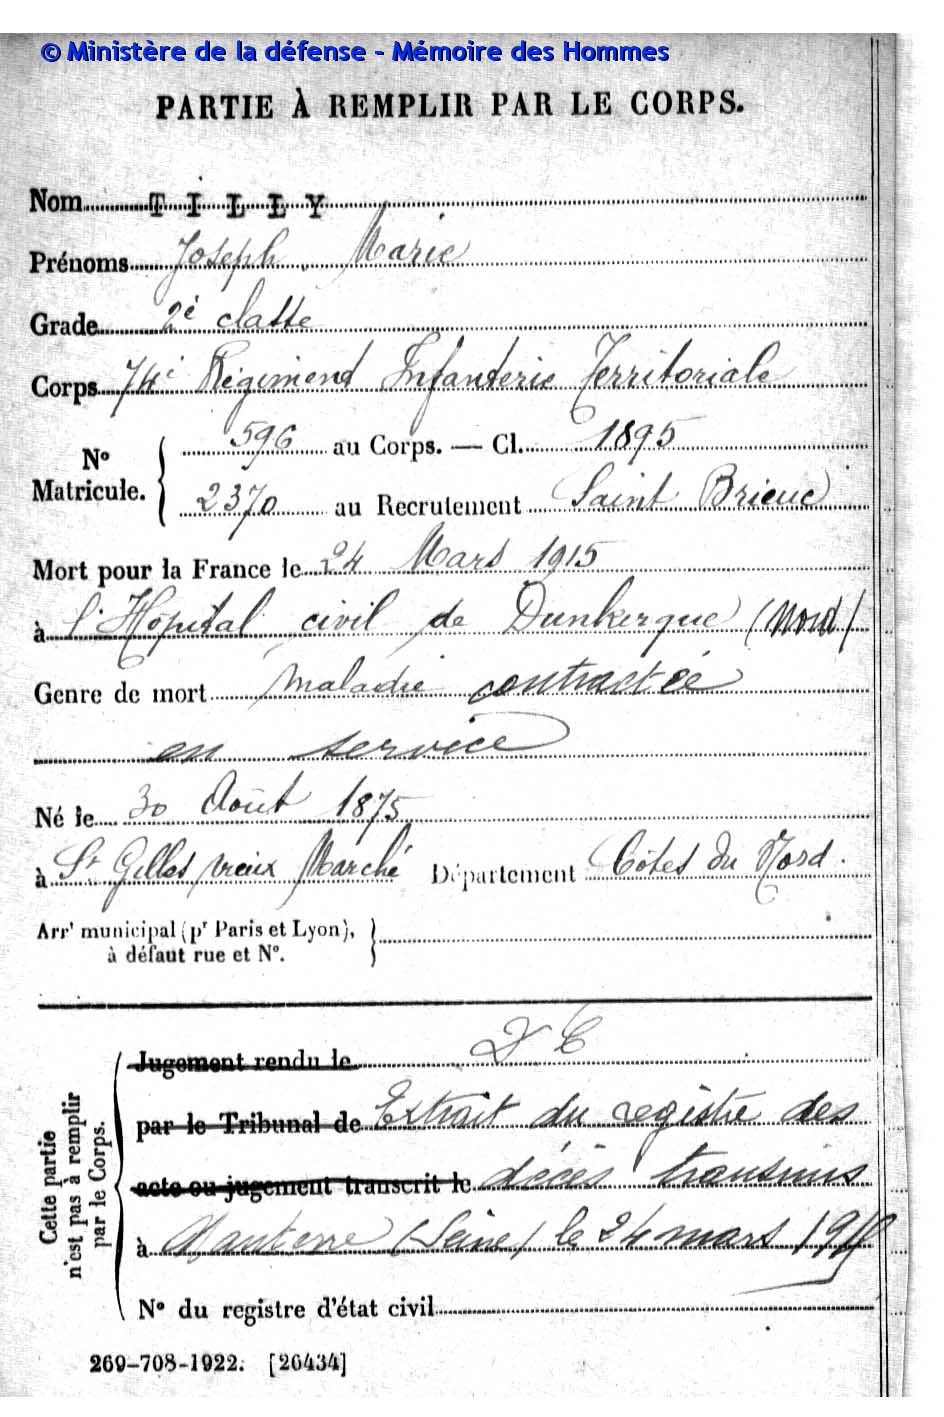 © Ministère de la défense - Mémoire des Hommes
PARTIE À REMPLIR PAR LE CORPS.
Nom TILLY
Prénoms Joseph, Marie
Grade 2è classe
Corps 74è Régiment Infanterie Territoriale
N° Matricule. { 596 au Corps. — Cl. 1895
2370 au Recrutement Saint Brieuc
Mort pour la France le 24 Mars 1915
à l'Hôpital civil de Dunkerque (Nord)
Genre de mort maladie contractée
en service
Né le 30 Août 1875
à St Gilles vieux Marché Département Côtes du Nord.
Arrt municipal (pr Paris et Lyon),
à défaut rue et N°.
Cette partie
n'est pas à remplir
par le Corps.
Jugement rendu le
par le Tribunal de Extrait du registre des
acte ou jugement transcrit le décès transmis
à Nanterre (Seine) le 24 mars 1915
N° du registre d'état civil
269-708-1922. [26434]